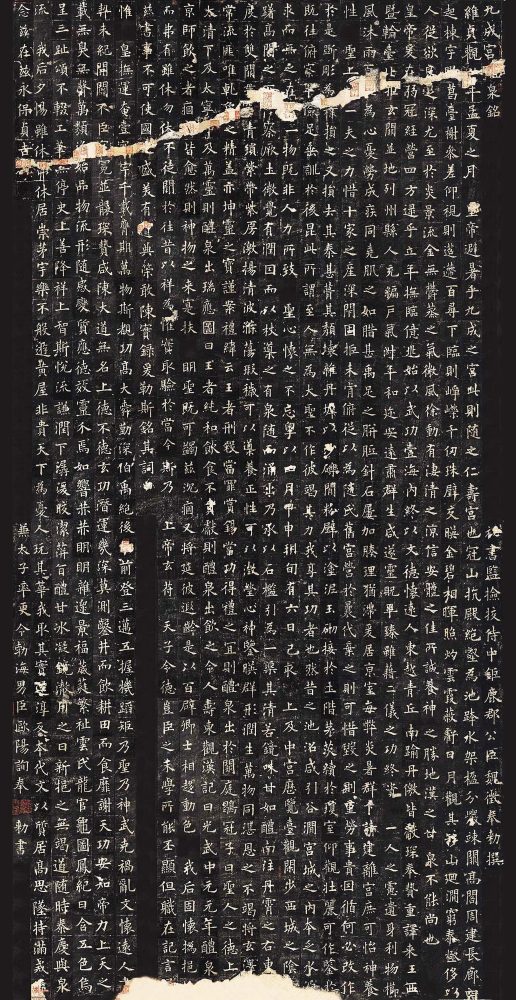 九成宮醴泉銘 祕書監檢校侍中鉅鹿郡公臣魏徵奉勅撰
維貞觀年孟夏之月皇帝避暑乎九成之宮此則隨之仁壽宮也冠山抗殿絕壑為池跨水架楹分巖竦闕高閣周建長廊四
起棟宇膠葛臺榭參差仰視則迢遰百尋下臨則崢嶸千仞珠璧交暎金碧相暉照灼雲霞蔽虧日月觀其移山迴澗窮泰極侈以
人從欲良足深尤至於炎景流金無鬱蒸之氣微風徐動有淒清之涼信安體之佳所誠養神之勝地漢之甘泉不能尚也
皇帝爰在弱冠經營四方逮乎立年撫臨億兆始以武功壹海內終以文德懷遠人東越青丘南踰丹徼皆獻琛奉贄重譯來王西
暨輪臺北拒玄闕並地列州縣人充編戶氣淑年和邇安遠肅群生咸遂靈貺畢臻雖藉二儀之功終資一人之慮遺身利物櫛
風沐雨百為心憂勞成疾同堯肌之如腊甚禹足之胼胝針石屢加腠理猶滯爰居京室每弊炎暑群下請建離宮庶可怡神養
性聖上愛一夫之力惜十家之產深閉固拒未肯俯從以為隨氏舊宮營於曩代棄之則可惜毀之則重勞事貴因循何必改作
於是斲彫為樸損之又損去其泰甚葺其頹壞雜丹墀以沙礫間粉壁以塗泥玉砌接於土階茅茨續於瓊室仰觀壯麗可作鑒於
既往俯察卑儉足垂訓於後昆此所謂至人無為大聖不作彼竭其力我享其功者也然昔之池沼咸引谷澗宮城之內本乏水源
求而無之在一物既非人力所致聖心懷之不忘粵以四月甲申朔旬有六日己亥上及中宮歷覽臺觀閑步西城之陰
躊躇高閣之下俯察厥土微覺有潤因而以杖導之有泉隨而涌出乃承以石檻引為一渠其清若鏡味甘如醴南注丹霄之右東流
度於雙闕貫穿青瑣縈帶紫房激揚清波滌蕩瑕穢可以導養正性可以澂瑩心神鑒暎群形潤生萬物同湛恩之不竭將玄澤
常流匪唯乾象之精蓋亦坤靈之寶謹案禮緯云王者刑殺當罪賞錫當功得禮之宜則醴泉出於闕庭鶡冠子曰聖人之德上及
太清下及太寧中及萬靈則醴泉出瑞應圖曰王者純和飲食不貢獻則醴泉出飲之令人壽東觀漢記曰光武中元元年醴泉出
京師飲之者痼疾皆愈然則神物之來寔扶明聖既可蠲茲沉痼又將延彼遐齡是以百辟卿士相趨動色我后固懷撝挹推
而弗有雖休勿休不徒聞於往昔以祥為懼實取驗於當今斯乃上帝玄符天子令德豈臣之末學所能丕顯但職在記言屬
茲書事不可使國之盛美有遺典策敢陳實錄爰勒斯銘其詞曰
惟皇撫運奄壹寰宇千載膺期萬物斯覩功高大舜勤深伯禹絕後光前登三邁五握機蹈矩乃聖乃神武克禍亂文懷遠人書
契未紀開闢不臣冠冕並襲琛贄咸陳大道無名上德不德玄功潛運幾深莫測鑿井而飲耕田而食靡謝天功安知帝力上天之
載無臭無聲萬類資始品物流形隨感變質應德效靈介焉如響赫赫明明雜遝景福葳蕤繁祉雲氏龍官龜圖鳳紀日含五色烏
呈三趾頌不輟工筆無停史上善降祥上智斯悅流謙潤下潺湲皎潔萍旨醴甘冰凝鏡澈用之日新挹之無竭道隨時泰慶與泉
流我后夕惕雖休弗休居崇茅宇樂不般遊黃屋非貴天下為憂人玩其華我取其實還淳反本代文以質居高思墜持滿戒溢
念茲在茲永保貞吉 兼太子率更令勃海男臣歐陽詢奉勅書